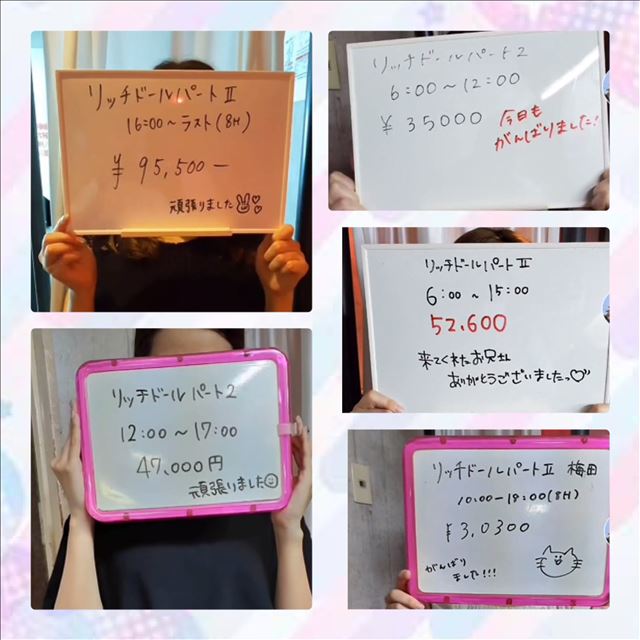 リッチドールパートⅡ
16:00〜ラスト(8H)
¥95,500―
頑張りました
リッチドールパート2
6:00〜12:00
¥35000
今日も
がんばりました!
リッチドールパートⅡ
6:00〜15:00
52,600
来てくれたお兄さん
ありがとうございましたっ♡
リッチドールパート2
12:00〜17:00
47,000円
頑張りました
リッチドールパートⅡ 梅田
10:00-18:00(8H)
¥3,0300
がんばり
ました!!!